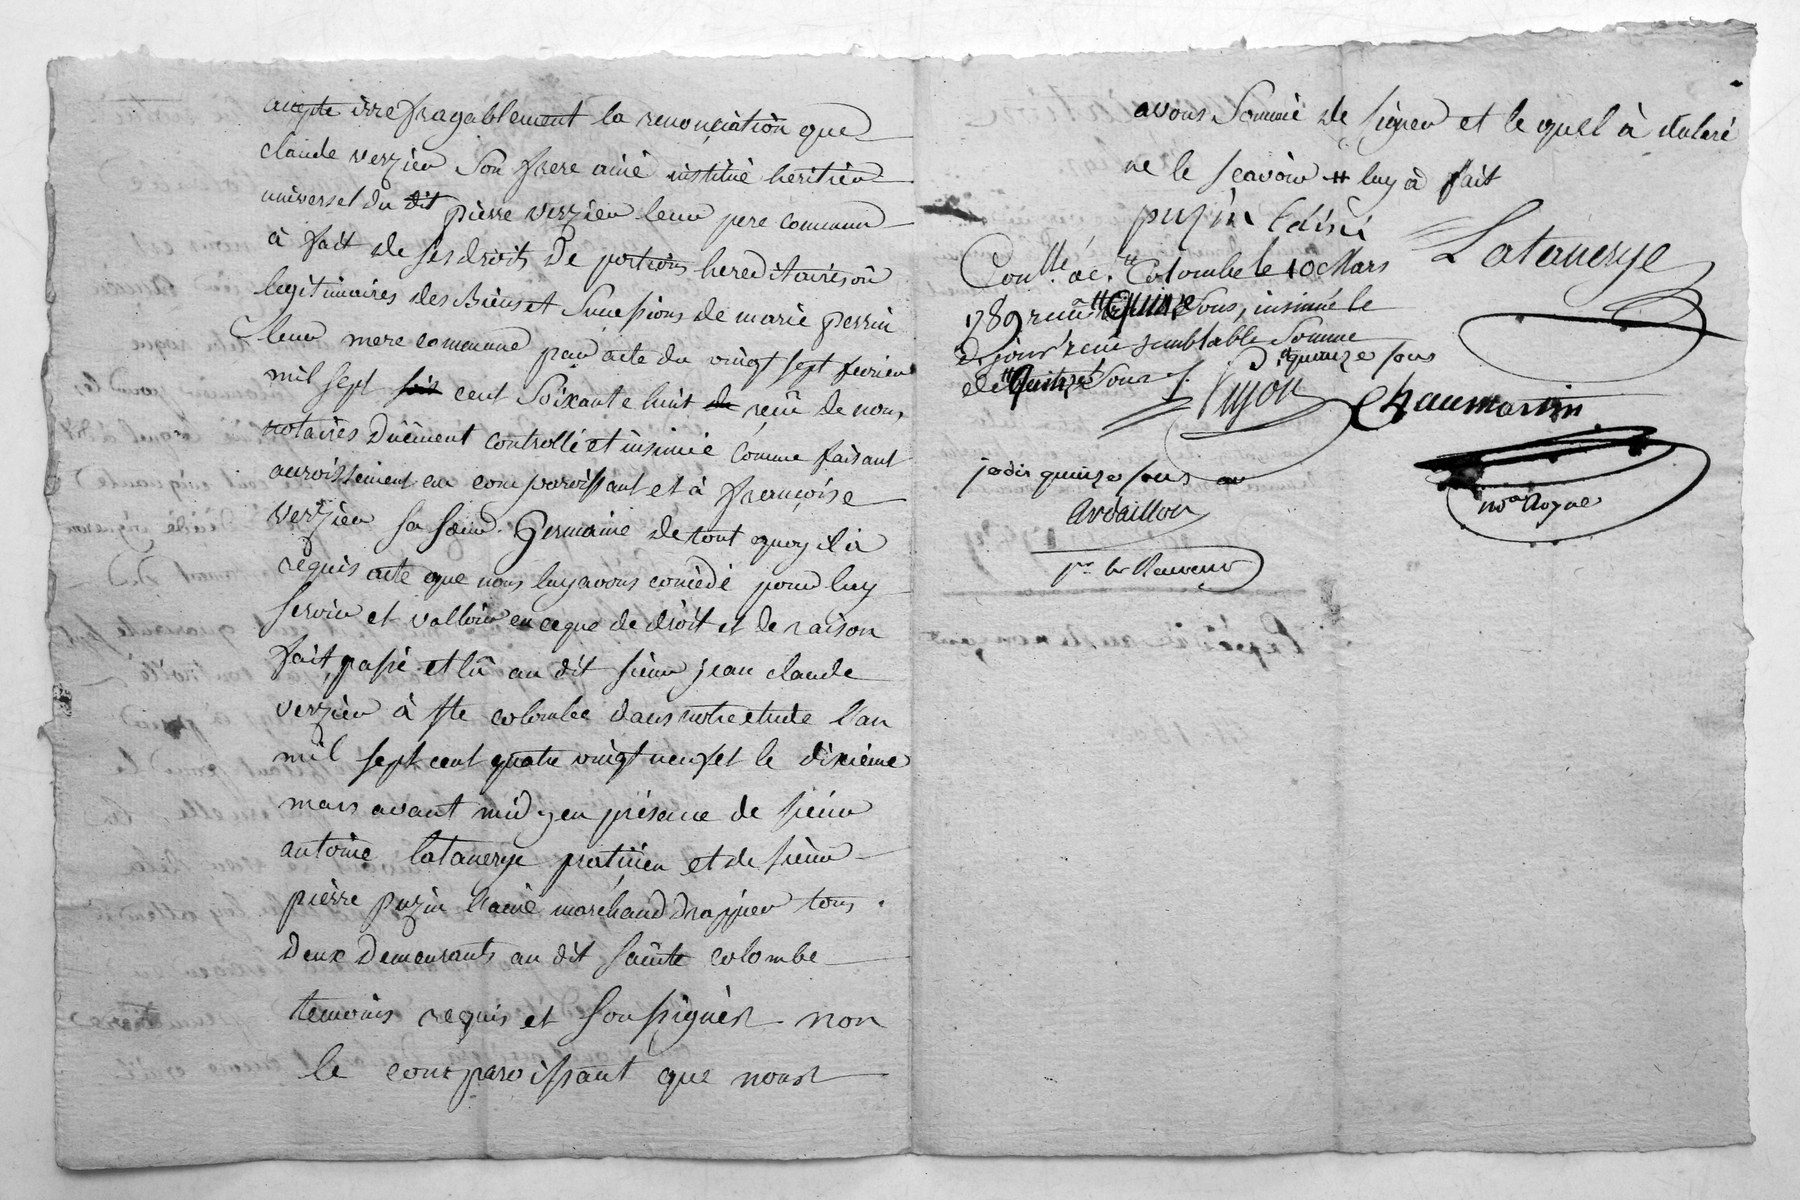 accepte irrefragablement la renonciation que
claude verzieu son frere ainé institué heritier
universel du dit pierre verzieu leur pere commun
à fait de ses droits De portions hereditaires où
legitimaires des Biens et Successions de marie perrin
leur mere commune par acte du vingt sept fevrier
mil sept cent soixante huit reçu de nous
notaires Duëment controllé et insinué comme faisant
accroissement au comparoissant et à françoise
verzieu sa sœur Germaine de tout quoy il à
requis acte que nous luy avons concédé pour luy
servir et valloir en ce que de droit et de raison
fait, passé et lû au dit sieur jean claude
verzieu à ste colombe dans notre etude l'an
mil sept cent quatre vingt neuf et le dixieme
mars avant midy en présence de sieur
antoine latanerye praticien et de sieur
pierre puzin l'ainé marchand drappier tous
Deux Demeurants au dit sainte colombe
temoins requis et soussignés non
le comparoissant que nous
avons sommé de signer et le quel à declaré
ne le sçavoir luy à fait
puzin l'ainé
Latanerye
Con.lle à S.te Colombe le 10 Mars
1789 reçu quinze sous, insinué le
d. jour reçu semblable somme
de quinze sous
d quinze sous
Pujon
Chaumartin
no.re Royae
jadis quinze sous
Ardaillon
p.r le Receveur